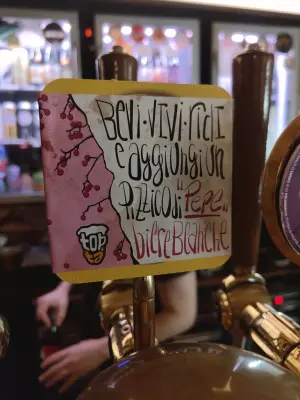 Bevi·Vivi·ridi
e aggiungi un
Pizzico di "Pepe"
bière Blanche
top